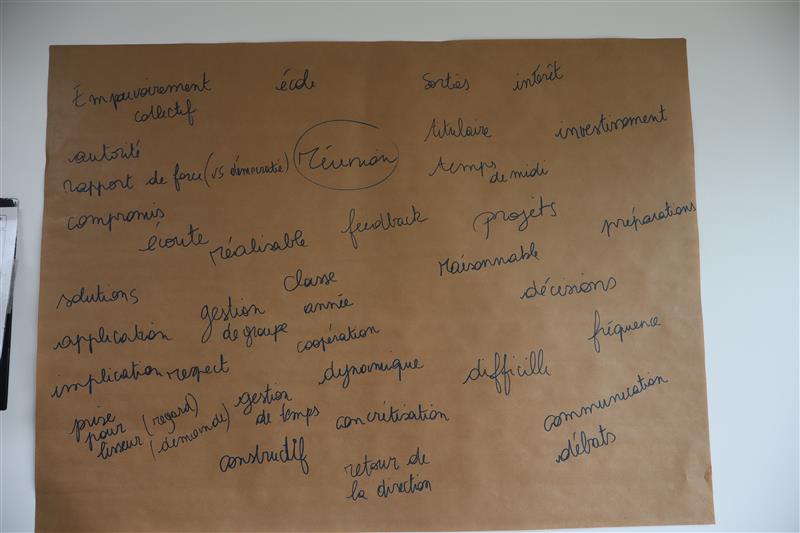 Empouvoirement école sorties intérêt
collectif
titulaire investissement
autorité
rapport de force (vs démocratie) Réunion temps
de midi
compromis
écoute réalisable feedback projets préparations
classe raisonnable
solutions gestion année décisions
application de groupe coopération fréquence
implication respect dynamique difficille
prise (regard) gestion
pour (demande) de temps concrétisation communication
constructif débats
retour de
la direction